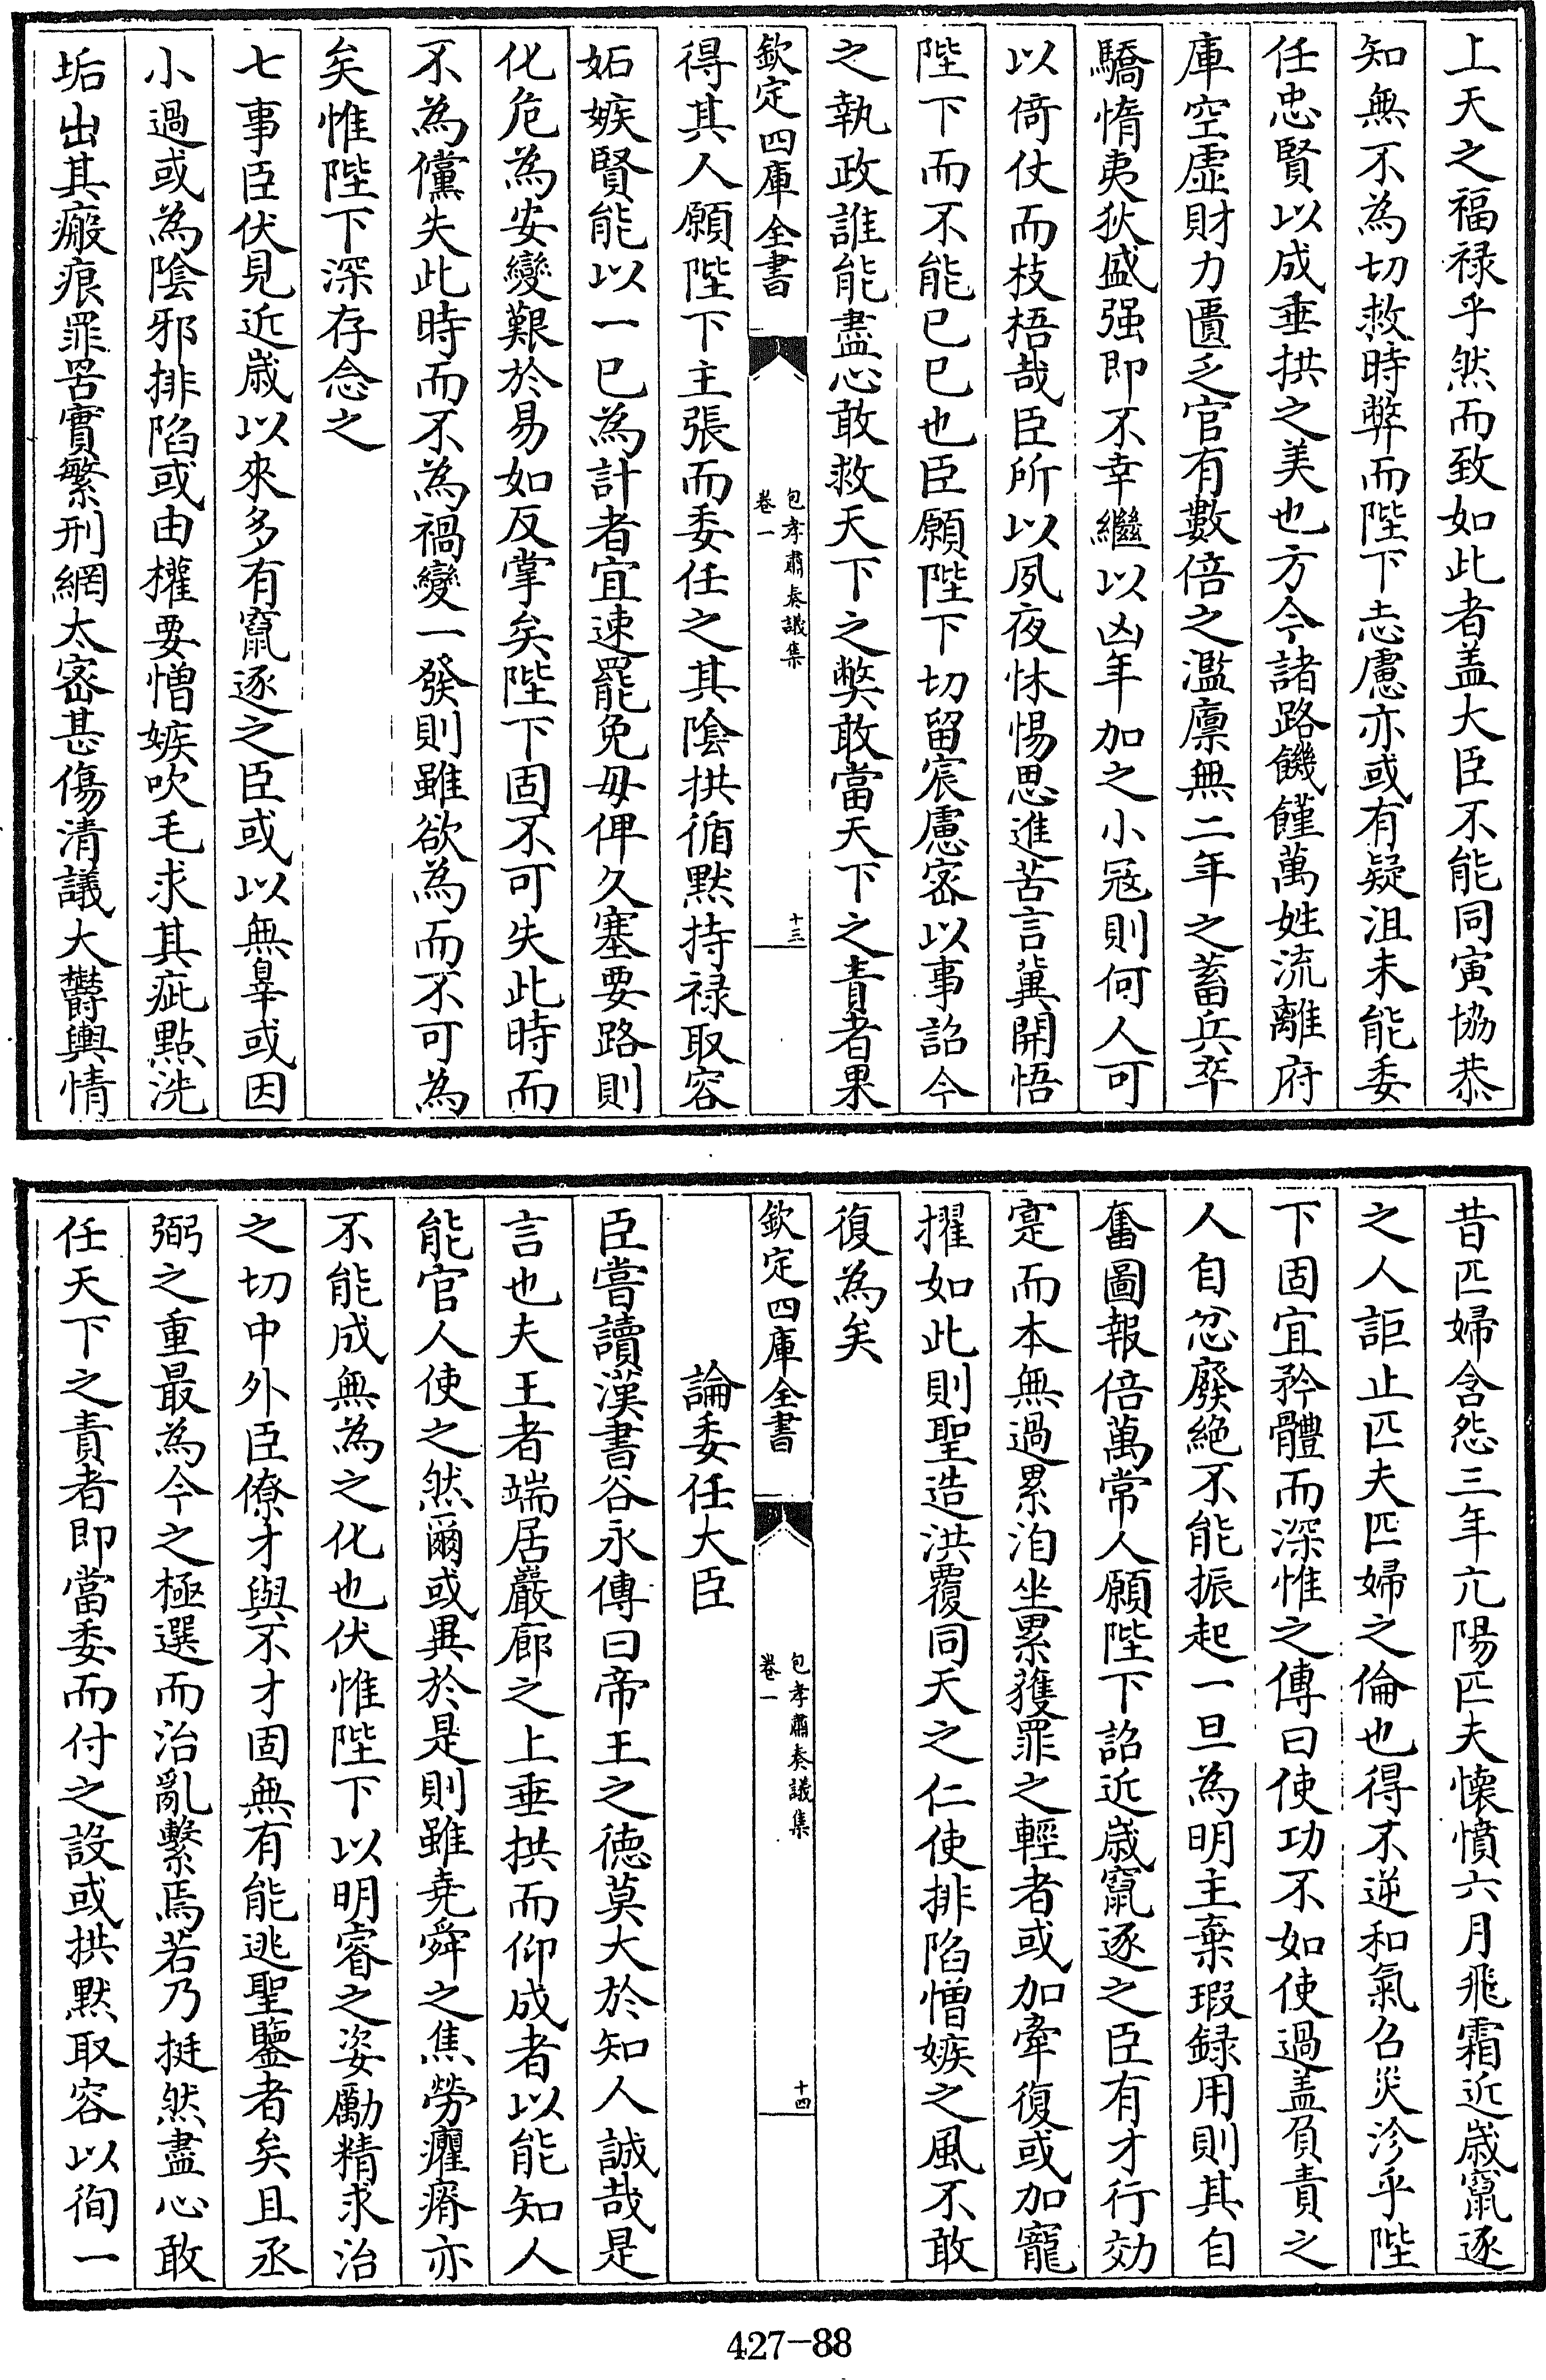 上天之福禄乎然而致如此者盖大臣不能同寅協恭
知無不為切救時弊而陛下志慮亦或有疑沮未能委
任忠賢以成垂拱之美也方今諸路饑饉萬姓流離府
庫空虛財力匱乏官有數倍之濫廪無二年之蓄兵卒
驕惰夷狄盛强即不幸繼以凶年加之小冦則何人可
以倚仗而枝梧哉臣所以夙夜怵惕思進苦言冀開悟
陛下而不能已已也臣願陛下切留宸慮宻以事詔今
之執政誰能盡心敢救天下之弊敢當天下之責者果
欽定四庫全書
包孝肅奏議集
卷一
十三
得其人願陛下主張而委任之其陰拱循黙持禄取容
妬嫉賢能以一已為計者宜速罷免毋俾久塞要路則
化危為安變艱於易如反掌矣陛下固不可失此時而
不為儻失此時而不為禍變一發則雖欲為而不可為
矣惟陛下深存念之
七事臣伏見近歳以來多有竄逐之臣或以無辠或因
小過或為陰邪排陷或由權要憎嫉吹毛求其疵點洗
垢出其瘢痕罪罟實繁刑網太宻甚傷清議大欝輿情
昔匹婦含怨三年亢陽匹夫懐憤六月飛霜近歳竄逐
之人詎止匹夫匹婦之倫也得不逆和氣召災沴乎陛
下固宜矜體而深惟之傳曰使功不如使過盖負責之
人自忿廢絶不能振起一旦為明主棄瑕録用則其自
奮圖報倍萬常人願陛下詔近歳竄逐之臣有才行効
寔而本無過累洎坐累獲罪之輕者或加牽復或加寵
擢如此則聖造洪覆同天之仁使排陷憎嫉之風不敢
復為矣
欽定四庫全書
包孝肅奏議集
卷一
十四
論委任大臣
臣嘗讀漢書谷永傳曰帝王之徳莫大於知人誠哉是
言也夫王者端居巖廊之上垂拱而仰成者以能知人
能官人使之然爾或異於是則雖堯舜之焦勞癯瘠亦
不能成無為之化也伏惟陛下以明睿之姿勵精求治
之切中外臣僚才與不才固無有能逃聖鑒者矣且丞
弼之重最為今之極選而治亂繫焉若乃挺然盡心敢
任天下之責者即當委而付之設或拱黙取容以徇一
427-88